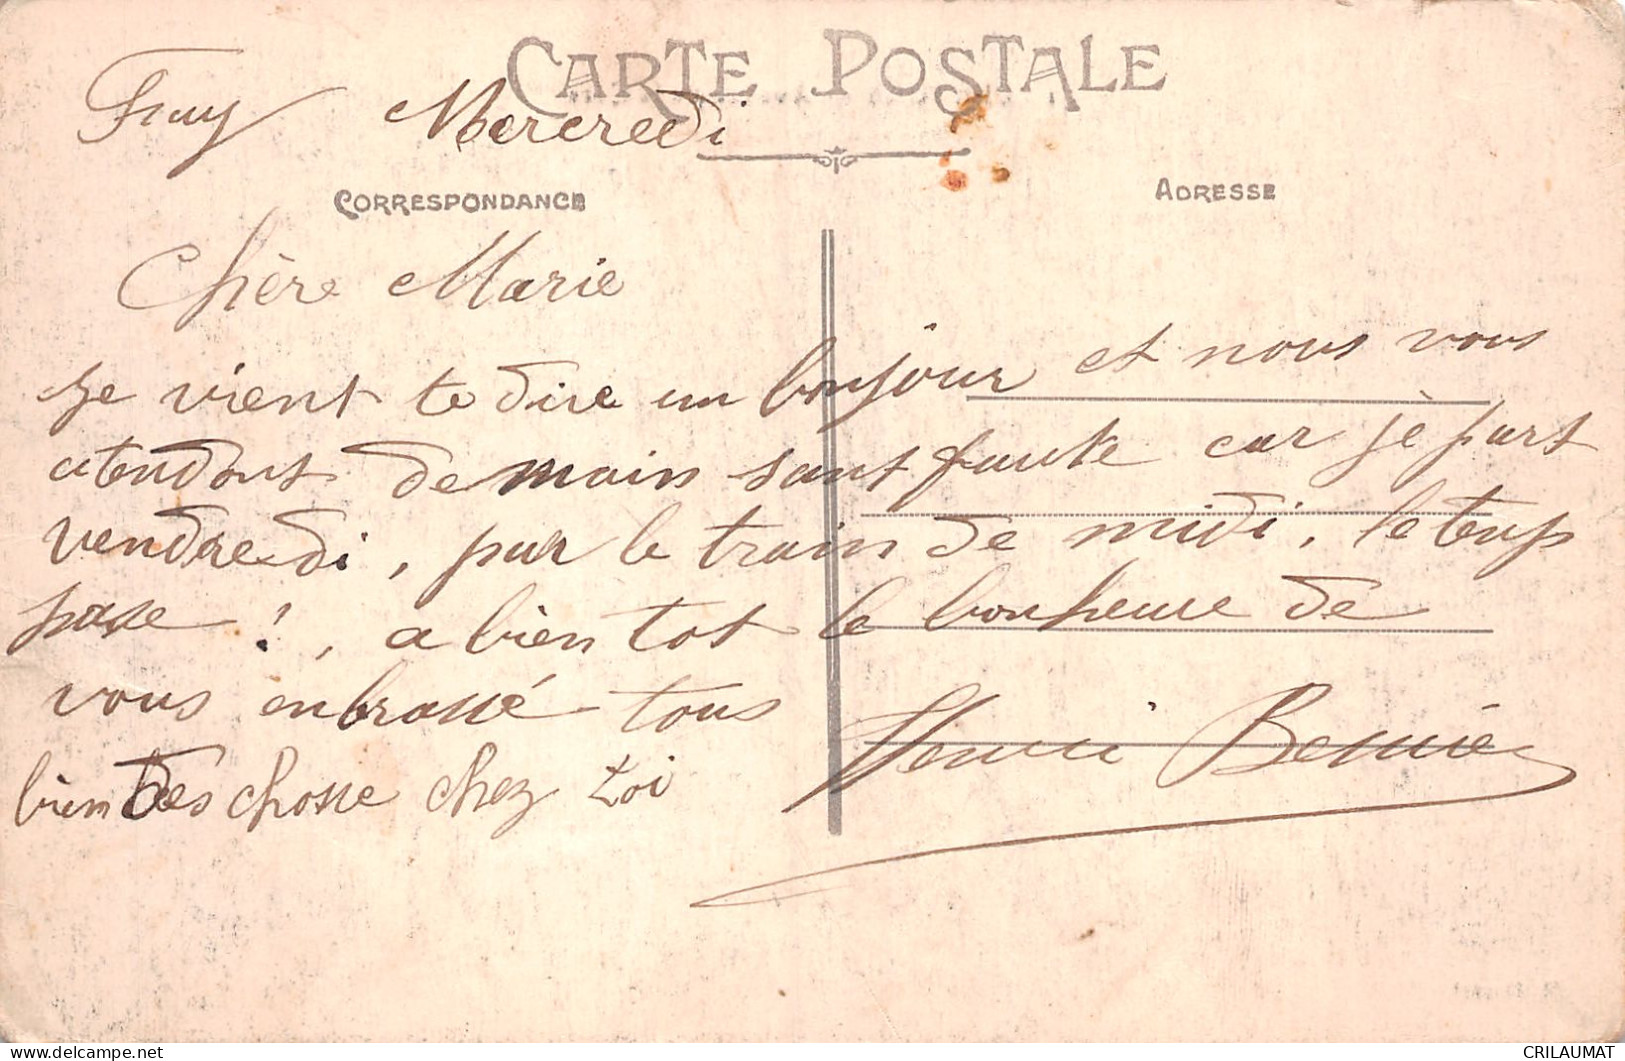 CARTE POSTALE
Mercredi
CORRESPONDANCE
ADRESSE
Chère Marie
Je vient te dire un bonjour et nous vous
atendons demain sant faute car jè part
vendredi, par le train de midi, le temp
passe !, a bien tot le bonheure de
vous enbrassé tous
bien des chosse chez toi
Henri
CRILAUMAT